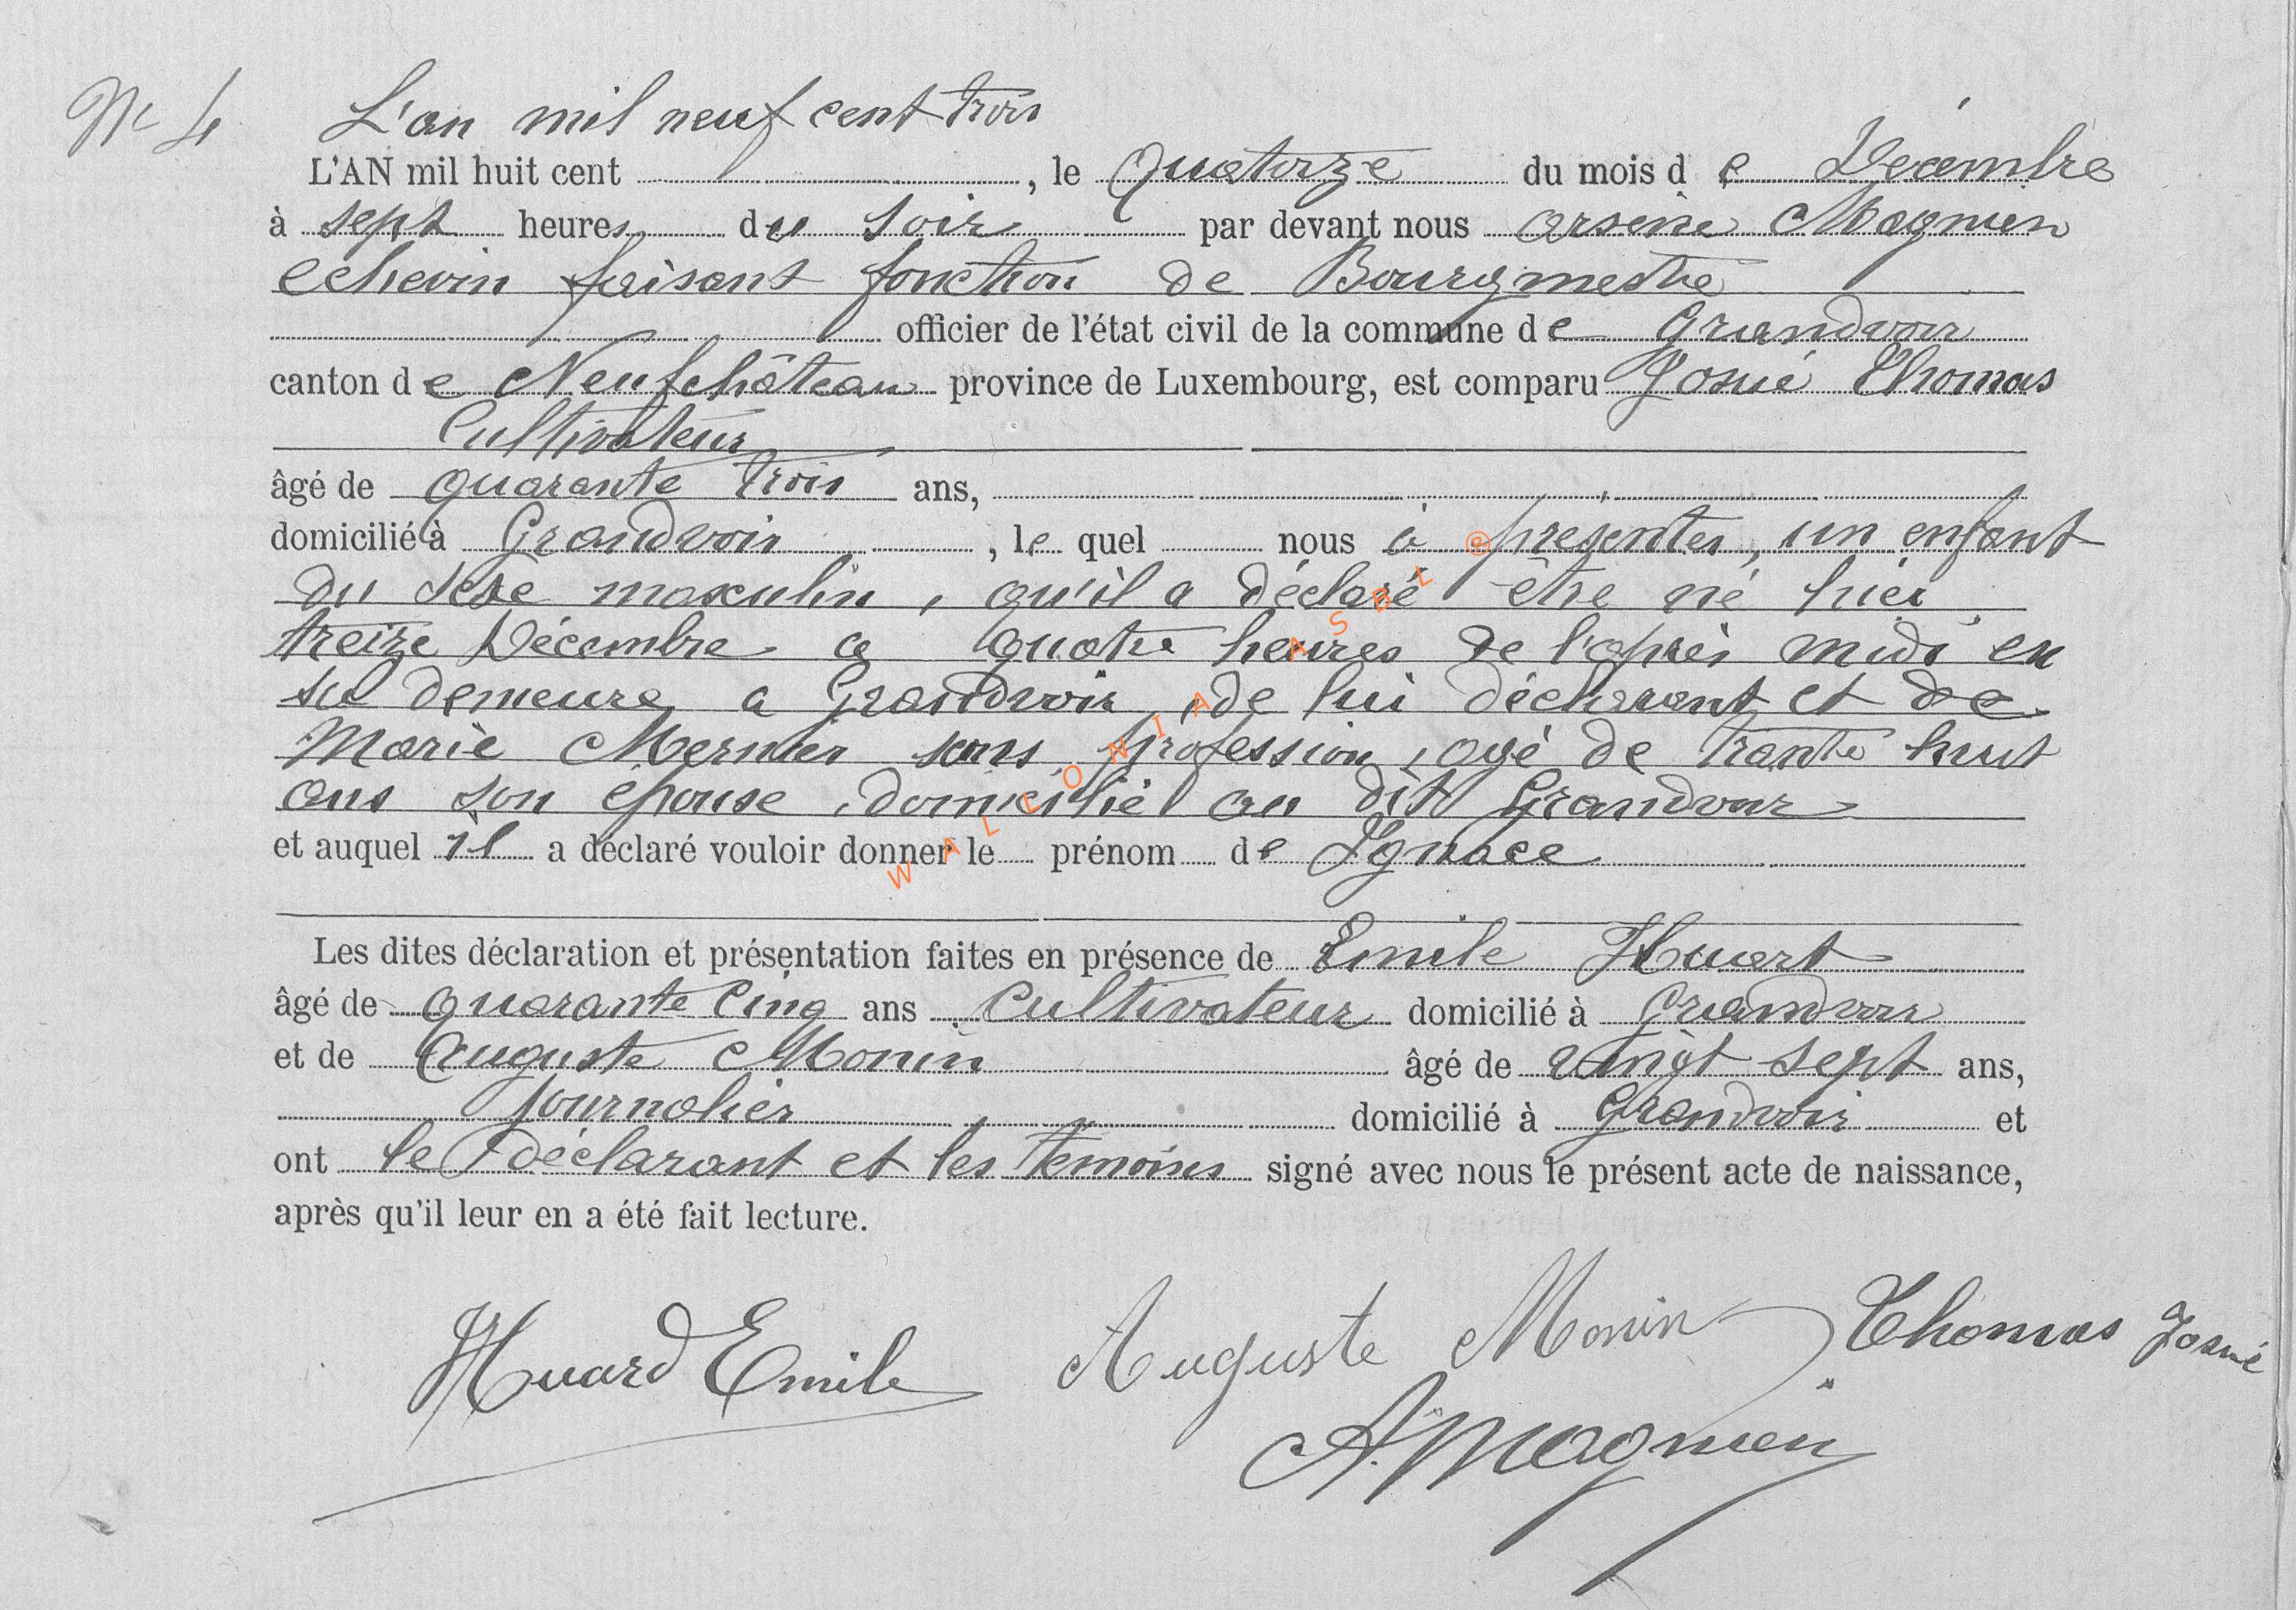 N° 4 L'an mil neuf cent trois
L'AN mil huit cent , le Quatorze du mois de Décembre
à sept heures du soir par devant nous Arsène Magnien
echevin faisant fonction de Bourgmestre
officier de l'état civil de la commune de Grandvoir
canton de Neufchâteau province de Luxembourg, est comparu Josué Thomas
Cultivateur
âgé de quarante trois ans,
domicilié à Grandvoir , le quel nous à présenter, un enfant
du sexe masculin, qu'il a déclaré être né hier
treize Décembre a quatre heures de l'après midi en
sa demeure a Grandvoir, de lui déclarant et de
Marie Mernier sans profession, agé de trante huit
ans son épouse, domicilié au dit Grandvoir
et auquel il a déclaré vouloir donner le prénom de Ignace
Les dites déclaration et présentation faites en présence de Emile Huart
âgé de quarante cinq ans Cultivateur domicilié à Grandvoir
et de Auguste Monin âgé de vingt sept ans,
journalier domicilié à Grandvoir et
ont le déclarant et les témoins signé avec nous le présent acte de naissance,
après qu'il leur en a été fait lecture.
Huard Emile Auguste Monin Thomas Josué
A. Magnien
WALLONIA ASBL ®